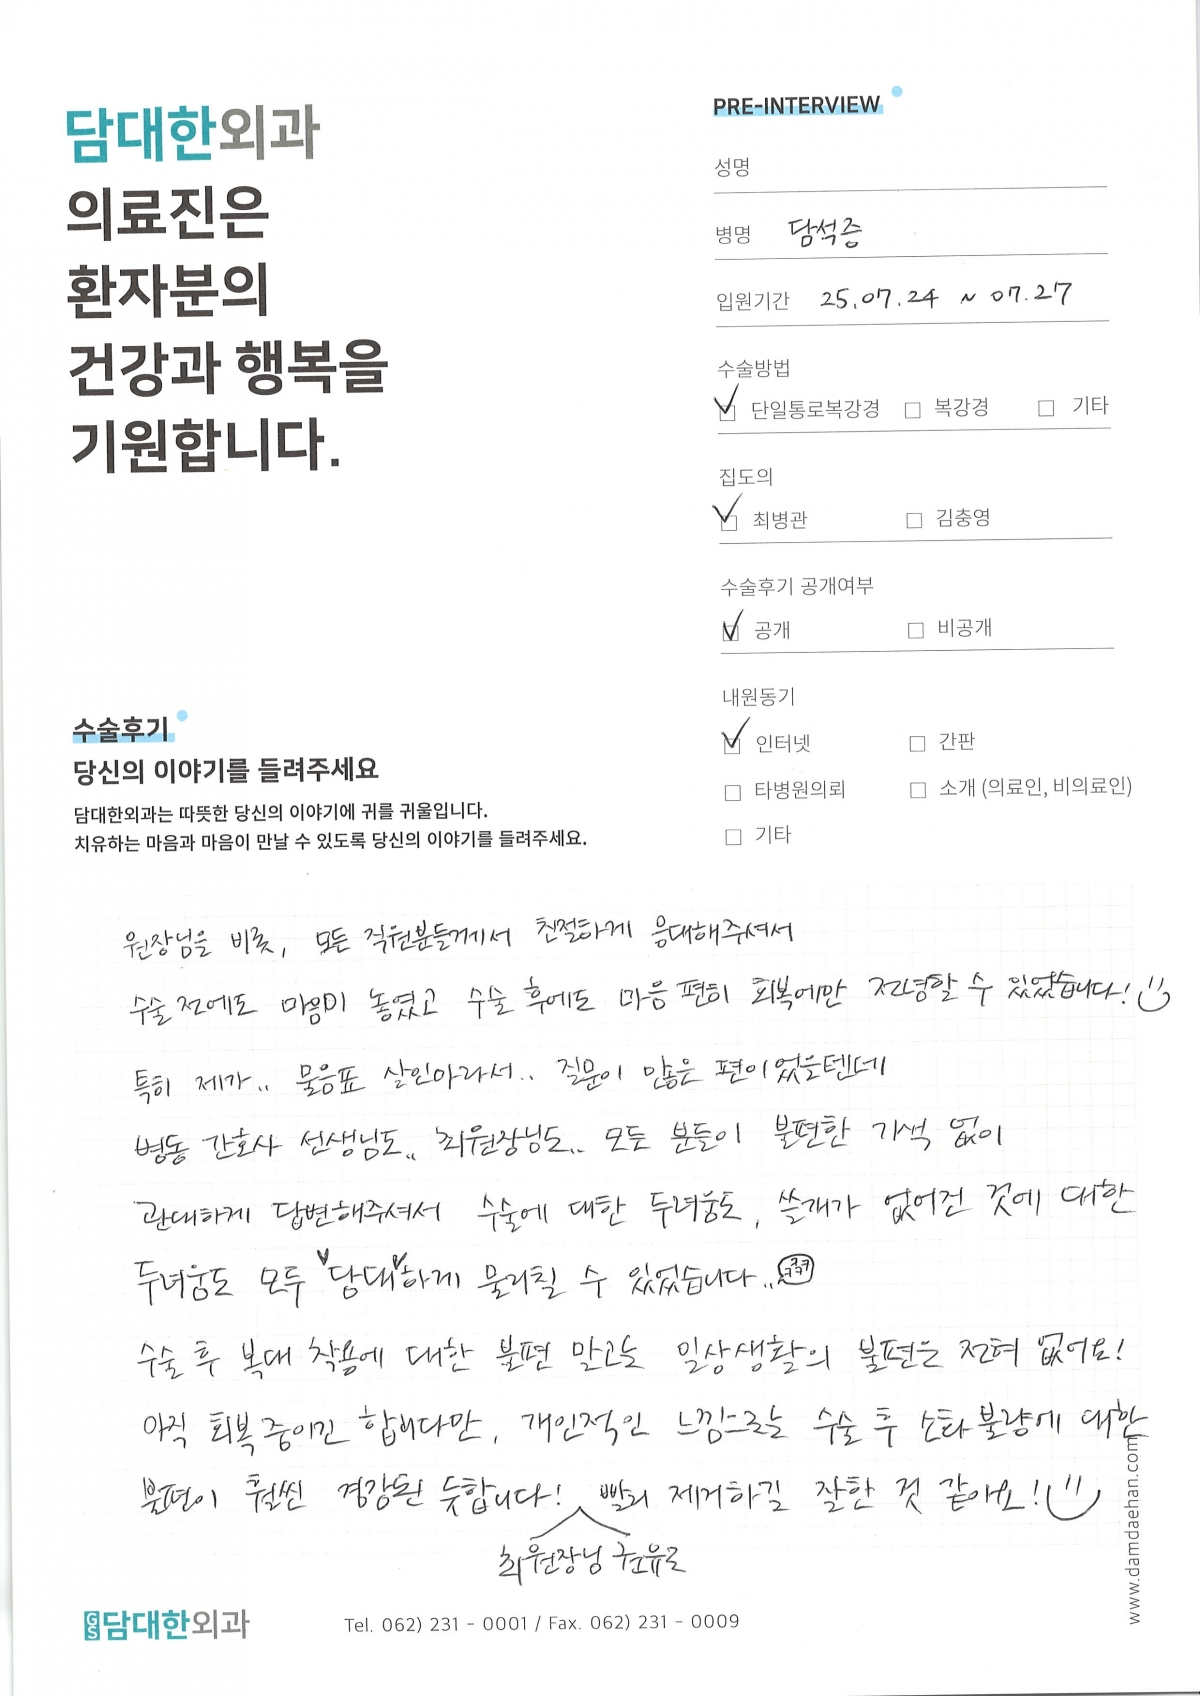 담대한외과
의료진은
환자분의
건강과 행복을
기원합니다.
PRE-INTERVIEW
성명
병명 담석증
입원기간 25.07.24 ~ 07.27
수술방법
☑ 단일통로복강경 □ 복강경 □ 기타
집도의
☑ 최병관 □ 김충영
수술후기 공개여부
☑ 공개 □ 비공개
내원동기
☑ 인터넷 □ 간판
□ 타병원의뢰 □ 소개 (의료인, 비의료인)
□ 기타
수술후기
당신의 이야기를 들려주세요
담대한외과는 따뜻한 당신의 이야기에 귀를 귀울입니다.
치유하는 마음과 마음이 만날 수 있도록 당신의 이야기를 들려주세요.
원장님을 비롯, 모든 직원분들께서 친절하게 응대해주셔서
수술 전에도 마음이 놓였고 수술 후에도 마음 편히 회복에만 전념할 수 있었습니다!
특히 제가.. 물음표 살인마라서.. 질문이 많은 편이었을텐데
병동 간호사 선생님도.. 최원장님도.. 모든 분들이 불편한 기색 없이
관대하게 답변해주셔서 수술에 대한 두려움도, 쓸개가 없어진 것에 대한
두려움도 모두 "담대"하게 물리칠 수 있었습니다.. ㅋㅋㅋㅋ
수술 후 복대 착용에 대한 불편 말고는 일상생활의 불편은 전혀 없어요!
아직 회복중이긴 합니다만, 개인적인 느낌으로는 수술 후 소화불량에 대한
불편이 훨씬 경감된 듯합니다! 빨리 제거하길 잘한 것 같아요!
최원장님 권유로
GS 담대한외과
Tel. 062) 231 - 0001 / Fax. 062) 231 - 0009
www.damdaehan.com